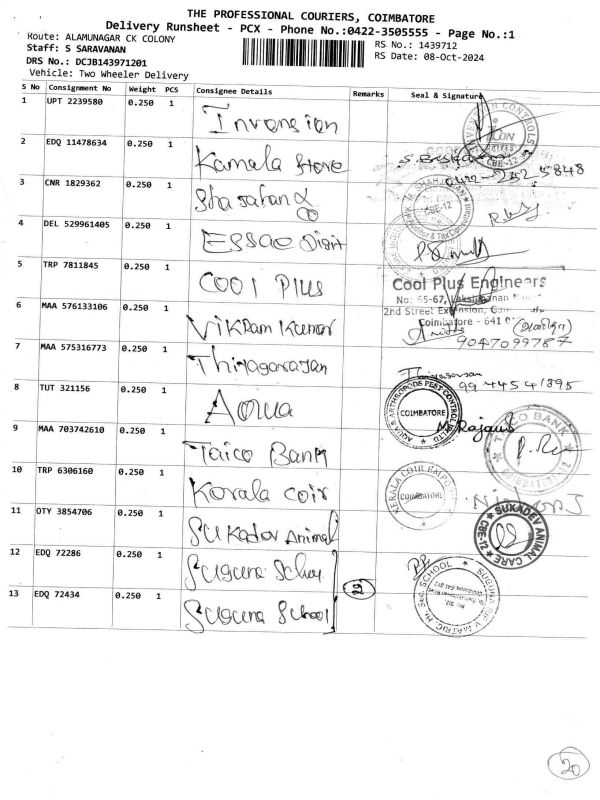 THE PROFESSIONAL COURIERS, COIMBATORE
Delivery Runsheet - PCX - Phone No.:0422-3505555 - Page No.:1
Route: ALAMUNAGAR CK COLONY
Staff: S SARAVANAN
RS No.: 1439712
DRS No.: DCJB143971201
RS Date: 08-Oct-2024
Vehicle: Two Wheeler Delivery
S No Consignment No Weight PCS Consignee Details Remarks Seal & Signature
1 UPT 2239580 0.250 1 Invension
2 EDQ 11478634 0.250 1 Kamala Store
0422-252 5848
3 CNR 1829362 0.250 1 Shajahan
4 DEL 529961405 0.250 1 ESSAE Digit
5 TRP 7811845 0.250 1 COOL PLUS
Cool Plus Engineers
No: 55-67, Lakshmanan
2nd Street Extension,
Coimbatore - 641 0
6 MAA 576133106 0.250 1 Vikram Kumar
9047099787
7 MAA 575316773 0.250 1 Thiyagarajan
Thiyagarajan
99 445 41895
8 TUT 321156 0.250 1 Aqua
AQUA ARTHROPODS PEST CONTROL
COIMBATORE
9 MAA 703742610 0.250 1 Taico Bank
TAICO BANK
COIMBATORE-12
10 TRP 6306160 0.250 1 Kerala coir
KERALA COIR EMPO
COIMBATORE
11 OTY 3854706 0.250 1 Sukadev Animal
SUKADEV ANIMAL CARE
CBE-12
12 EDQ 72286 0.250 1 Suguna School
13 EDQ 72434 0.250 1 Suguna School
29
20